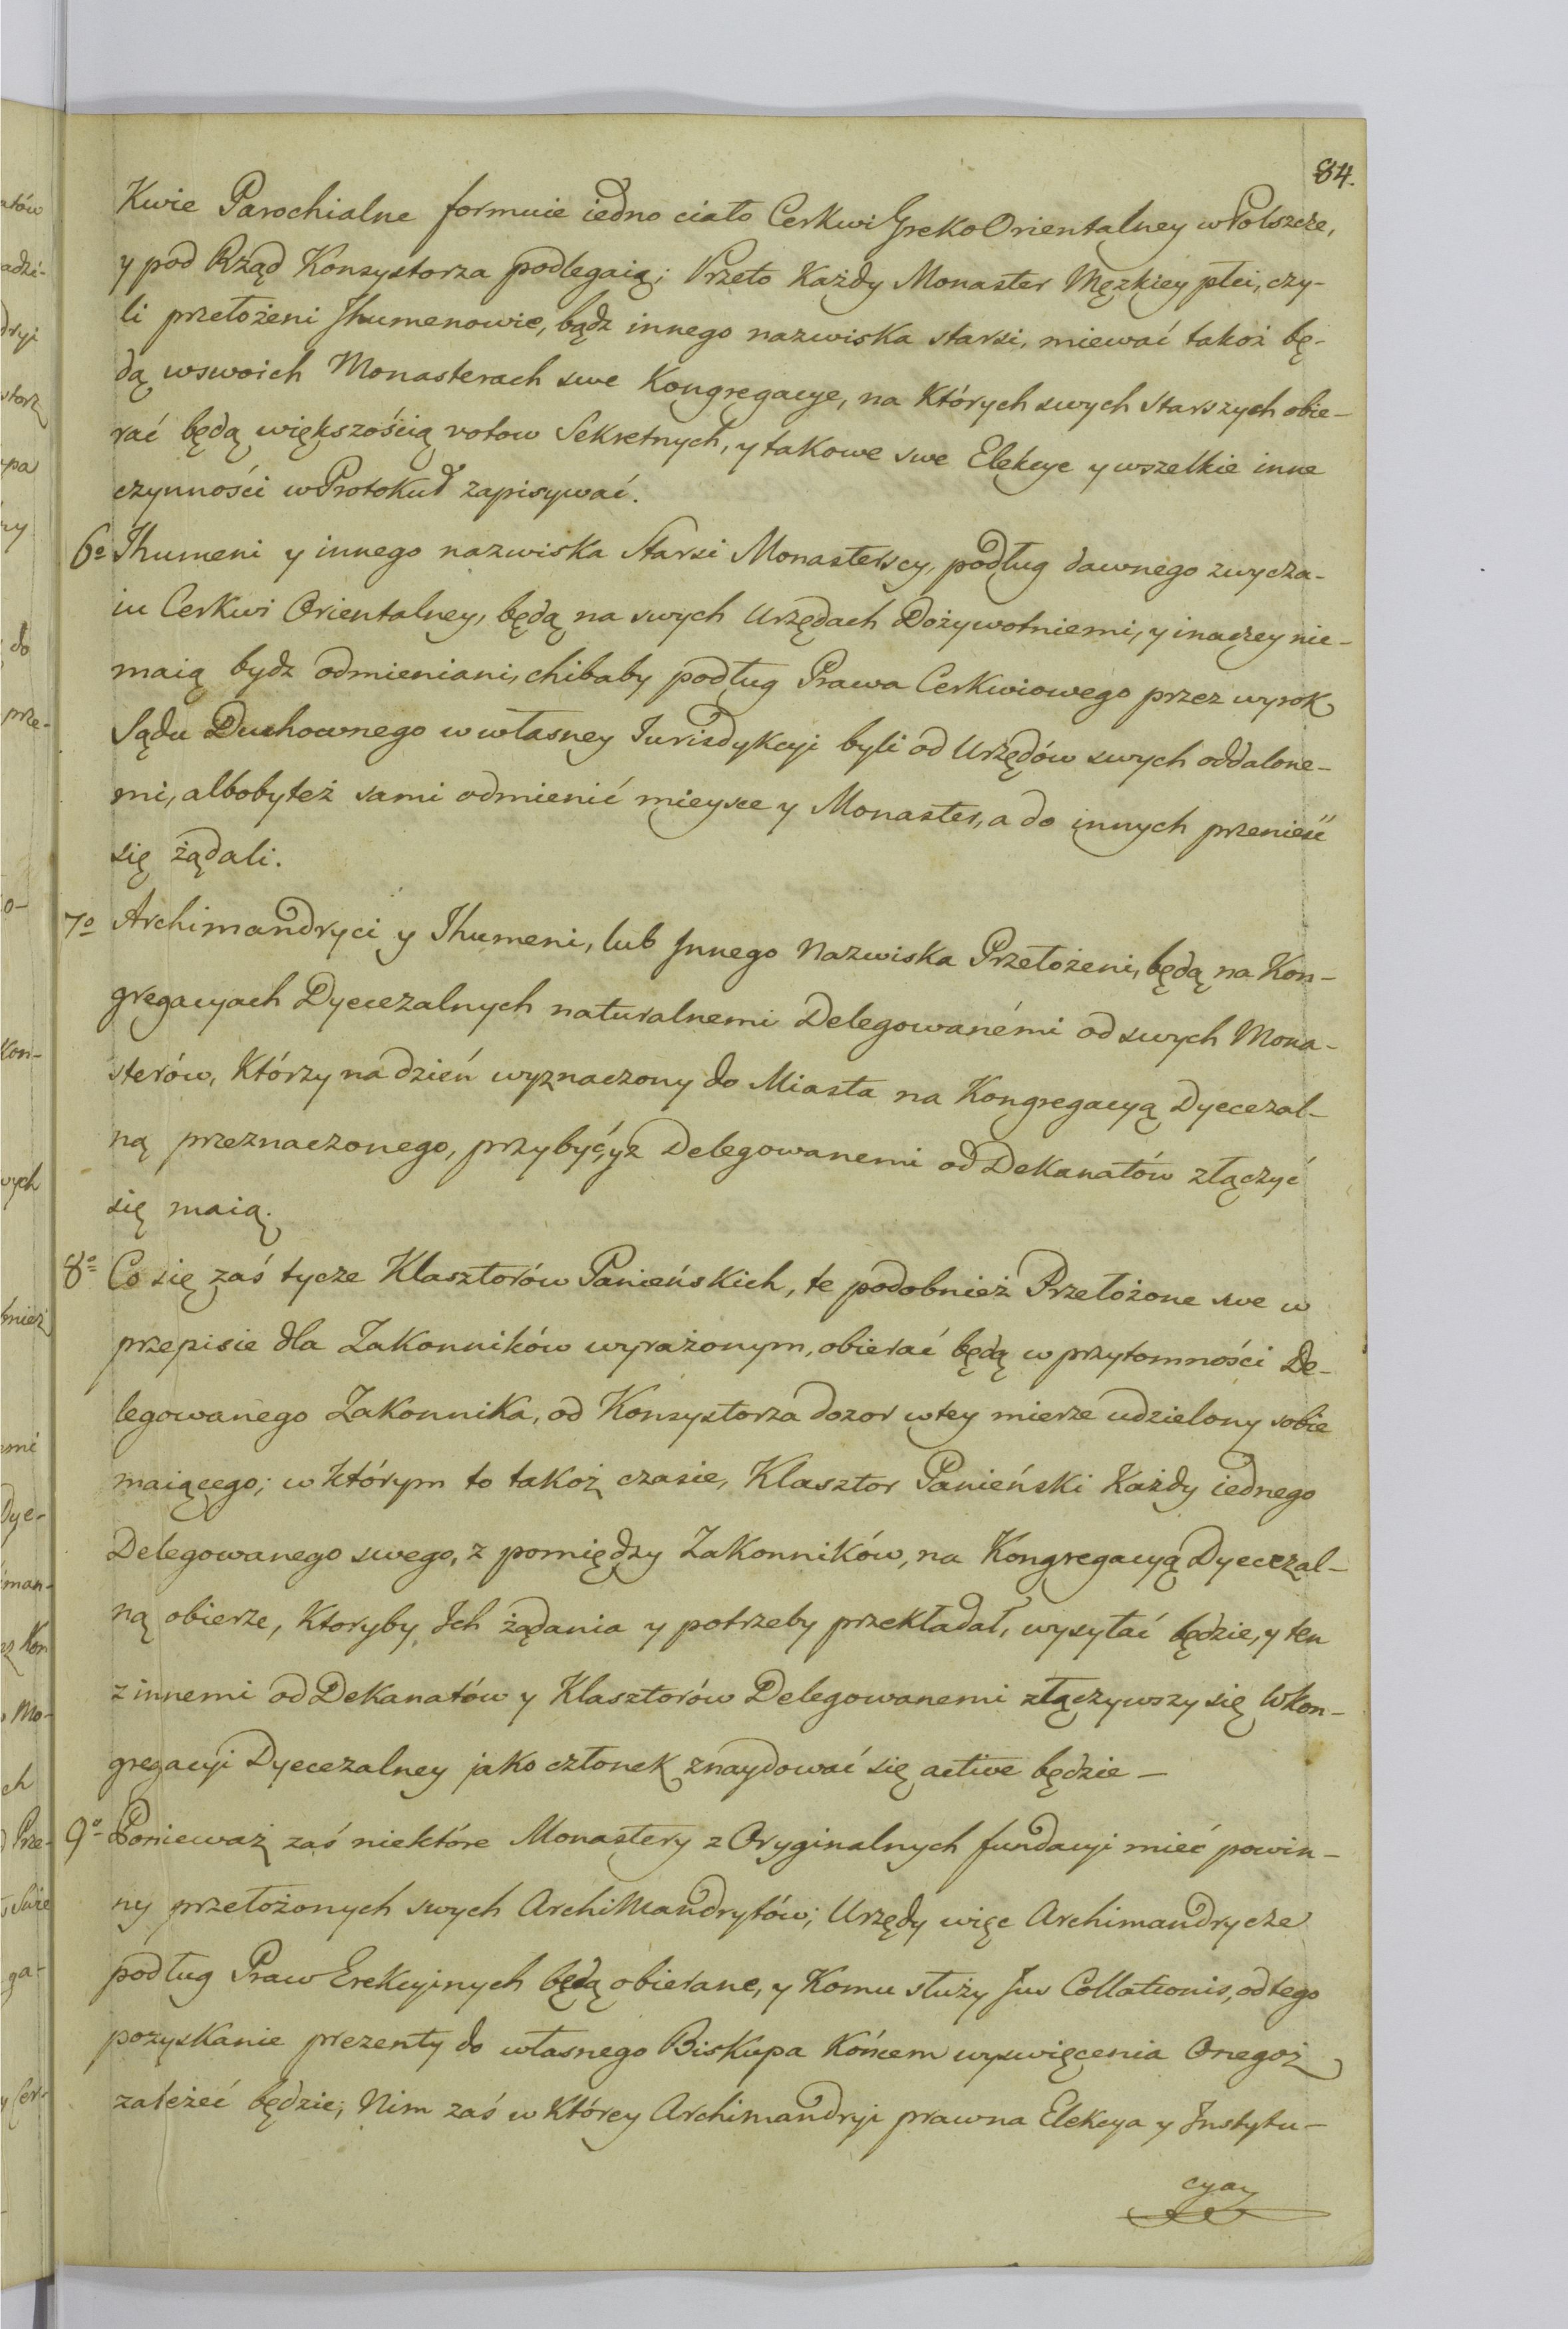 84.
Kwie Parochialne formuie iedno ciało Cerkwi Greko Orientalney w Polszcze,
y pod Rząd Konsystorza podlegaią; Przeto Każdy Monaster Męzkiey płci, czy-
li przełożeni Jhumenowie, bądz innego nazwiska starsi, miewać takoż bę-
dą wswoich Monasterach swe Kongregacye, na Których swych Starszych obie-
rać będą większością votow Sekretnych, y takowe swe Elekcye y wszelkie inne
czynności w Protokuł zapisywać.
6o Jhumeni y innego nazwiska Starsi Monasterscy, podług dawnego zwycza-
iu Cerkwi Orientalney, będą na swych Urzędach Dożywotniemi, y inaczey nie-
maią bydz odmieniani, chibaby podług Prawa Cerkwiowego przez wyrok
Sądu Duchownego w własney Jurisdykcyi byli od Urzędów swych oddalone-
mi, albobyteż sami odmienić mieysce y Monaster, a do innych przenieść
się żądali.
7o Archimandryci y Jhumeni, lub Jnnego Nazwiska Przełożeni, będą na Kon-
gregacyach Dyecezalnych naturalnemi Delegowanémi od swych Mona-
sterów, Którzy na dzień wyznaczony do Miasta na Kongregacyą Dyecezal-
ną przeznaczonego, przybyć, y z Delegowanemi od Dekanatów złączyć
się maią.
8o Co się zaś tycze Klasztorów Panieńskich, te podobnież Przełożone swe w
przepisie dla Zakonników wyrażonym, obierać będą w przytomności De-
legowanego Zakonnika, od Konsystorza dozor wtey mierze udzielony sobie
maiącego; w którym to takoż czasie, Klasztor Panieński Każdy iednego
Delegowanego swego, z pomiędzy Zakonników, na Kongregacyą Dyecezal-
ną obierze, Ktoryby Jch żądania y potrzeby przekładał, wysyłać będzie, y ten
z innemi od Dekanatów y Klasztorów Delegowanemi złączywszy się w Kon-
gregacyi Dyecezalney jako członek znaydować się active będzie —
9o Ponieważ zaś niektóre Monastery z Oryginalnych fundacyi mieć powin-
ny przełożonych swych ArchiMandrytów; Urzędy więc Archimandrycze
podług Praw Erekcyinych będą obierane, y Komu służy Jus Collationis, od tego
pozyskanie prezenty do własnego Biskupa Końcem wyswięcenia Onegoż
zależeć będzie; Nim zaś w Którey Archimandryi prawna Elekcya y Jnstytu-
cyay